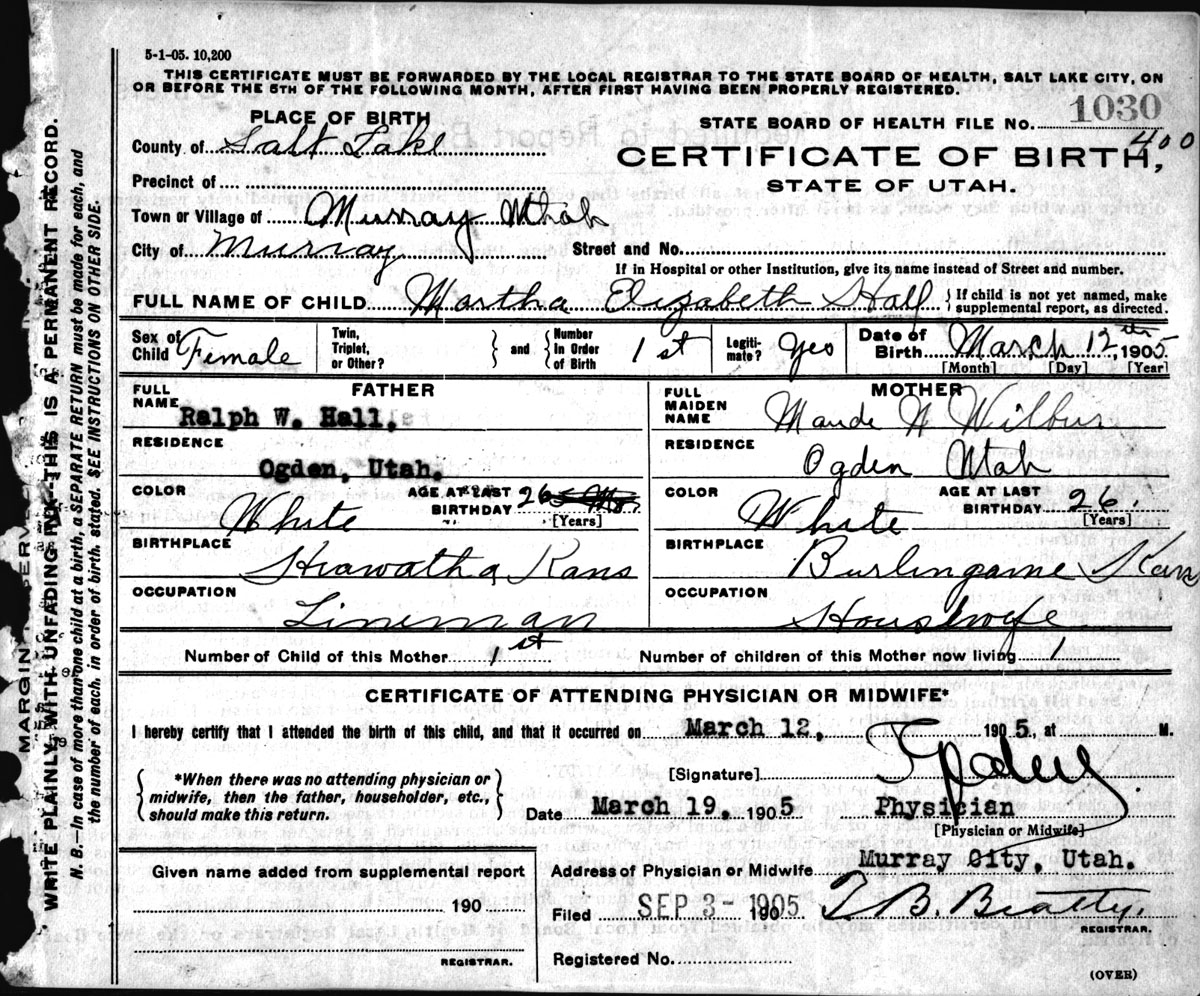 5-1-05. 10,200
THIS CERTIFICATE MUST BE FORWARDED BY THE LOCAL REGISTRAR TO THE STATE BOARD OF HEALTH, SALT LAKE CITY, ON
OR BEFORE THE 5TH OF THE FOLLOWING MONTH, AFTER FIRST HAVING BEEN PROPERLY REGISTERED.
PLACE OF BIRTH
STATE BOARD OF HEALTH FILE NO. 1030
400
County of Salt Lake
CERTIFICATE OF BIRTH,
Precinct of
STATE OF UTAH.
Town or Village of Murray Utah
City of Murray Street and No.
If in Hospital or other Institution, give its name instead of Street and number.
FULL NAME OF CHILD Martha Elizabeth Hall { If child is not yet named, make
supplemental report, as directed.
Sex of Child Female Twin, Triplet, or Other? } and { Number In Order of Birth 1st Legiti-mate? Yes Date of Birth March 12th 1905
[Month] [Day] [Year]
FATHER MOTHER
FULL NAME Ralph W. Hall. FULL MAIDEN NAME Maude N Wilbur
RESIDENCE Ogden, Utah. RESIDENCE Ogden Utah
COLOR White AGE AT LAST BIRTHDAY 26 [Years] COLOR White AGE AT LAST BIRTHDAY 26. [Years]
BIRTHPLACE Hiawatha Kans BIRTHPLACE Burlingame Kans
OCCUPATION Lineman OCCUPATION Housewife
Number of Child of this Mother 1st Number of children of this Mother now living 1
CERTIFICATE OF ATTENDING PHYSICIAN OR MIDWIFE*
I hereby certify that I attended the birth of this child, and that it occurred on March 12, 1905, at M.
{ *When there was no attending physician or
midwife, then the father, householder, etc.,
should make this return. }
[Signature]
Date March 19, 1905 Physician
[Physician or Midwife]
Given name added from supplemental report
Address of Physician or Midwife Murray City, Utah.
190
Filed SEP 3- 1905 T B. Beatty.
REGISTRAR.
REGISTRAR.
Registered No.
(OVER)
MARGIN
WRITE PLAINLY WITH UNFADING INK—THIS IS A PERMANENT RECORD.
N. B.—In case of more than one child at a birth, a SEPARATE RETURN must be made for each, and
the number of each, in order of birth, stated. SEE INSTRUCTIONS ON OTHER SIDE.